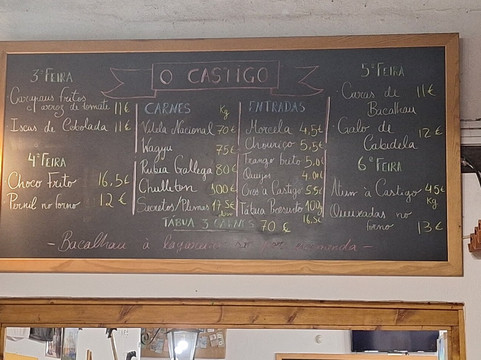 O CASTIGO
3ª FEIRA
Carapaus fritos
arroz de tomate 11€
Iscas de Cebolada 11€
4ª FEIRA
Choco Frito 16.5€
Pernil no forno 12€
CARNES Kg
Vitela Nacional 70€
Wagyu 75€
Rubia Gallega 80€
Chuletton 100€
Secretos/Plumas 17,5€
ENTRADAS
Morcela 4,5€
Chouriço 5.5€
Frango frito 5.0€
Queijos 4.0€
Ovos à Castigo 5.5€
Tábua Presunto 100g
16.5€
TÁBUA 3 CARNES 70€
5ª FEIRA
Caras de 11€
Bacalhau
Galo de 12€
Cabidela
6ª FEIRA
à Castigo 45€
Kg
Queixadas no
forno 13€
- Bacalhau à